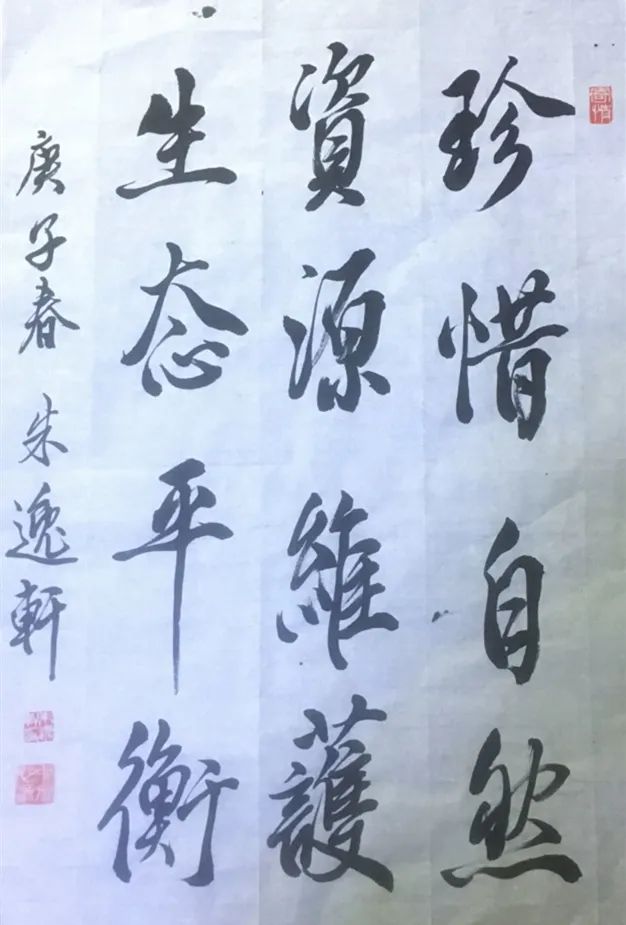 珍惜自然
資源維護
生态平衡
庚子春 朱逸軒